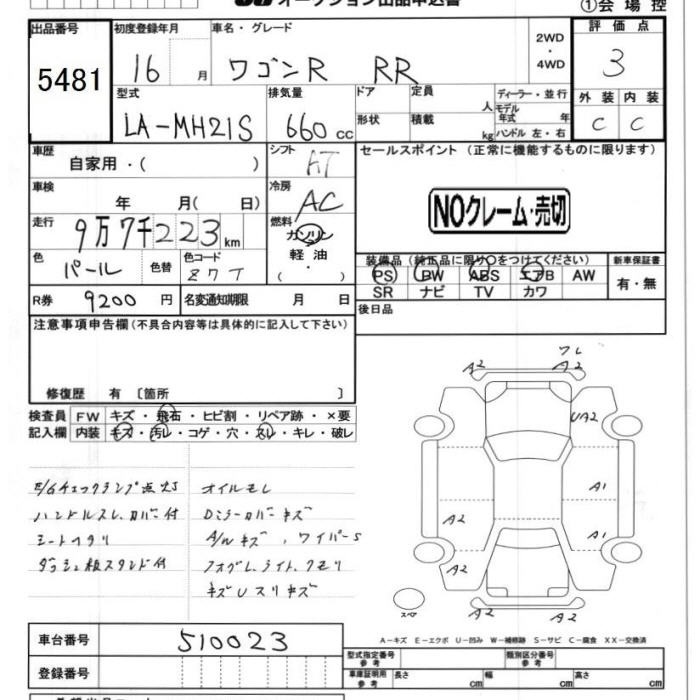 オークション出品申込書
①会場控
出品番号 5481
初度登録年月 16 月
車名・グレード ワゴンR RR
2WD・4WD
評価点 3
型式 LA-MH21S
排気量 660 cc
ドア 形状
定員 人
積載 kg
ディーラー・並行
モデル年式 年
ハンドル 左・右
外装 C
内装 C
車歴 自家用・( )
シフト AT
セールスポイント (正常に機能するものに限ります)
車検 年 月( 日)
冷房 AC
NOクレーム・売切
走行 9万7千223km
燃料 ガソリン・軽油・( )
色 パール
色替
色コード Z7T
装備品 (純正品に限り○をつけてください)
PS PW ABS エアB AW
SR ナビ TV カワ
新車保証書 有・無
R券 9200 円
名変通知期限 月 日
後日品
注意事項申告欄(不具合内容等は具体的に記入して下さい)
修復歴 有 〔箇所 〕
検査員記入欄
FW キズ・飛石・ヒビ割・リペア跡・×要
内装 キズ・汚レ・コゲ・穴・スレ・キレ・破レ
E/Gチェックランプ点灯
ハンドルスレ、カバー付
シートヘタリ
ダッシュ板スタンド付
オイルモレ
Dミラーカバーキズ
A/Wキズ、ワイパーS
フォグレ、ライト、クモリ
キズUスリキズ
ワレ
A2 A2
UA2
A1
A2
A1
A2
A2 A2
スペア
A-キズ E-エクボ U-凹み W-補修跡 S-サビ C-腐食 XX-交換済
車台番号 510023
登録番号
型式指定番号 参考
類別区分番号 参考
車庫証明用 参考 長さ cm 幅 cm 高さ cm